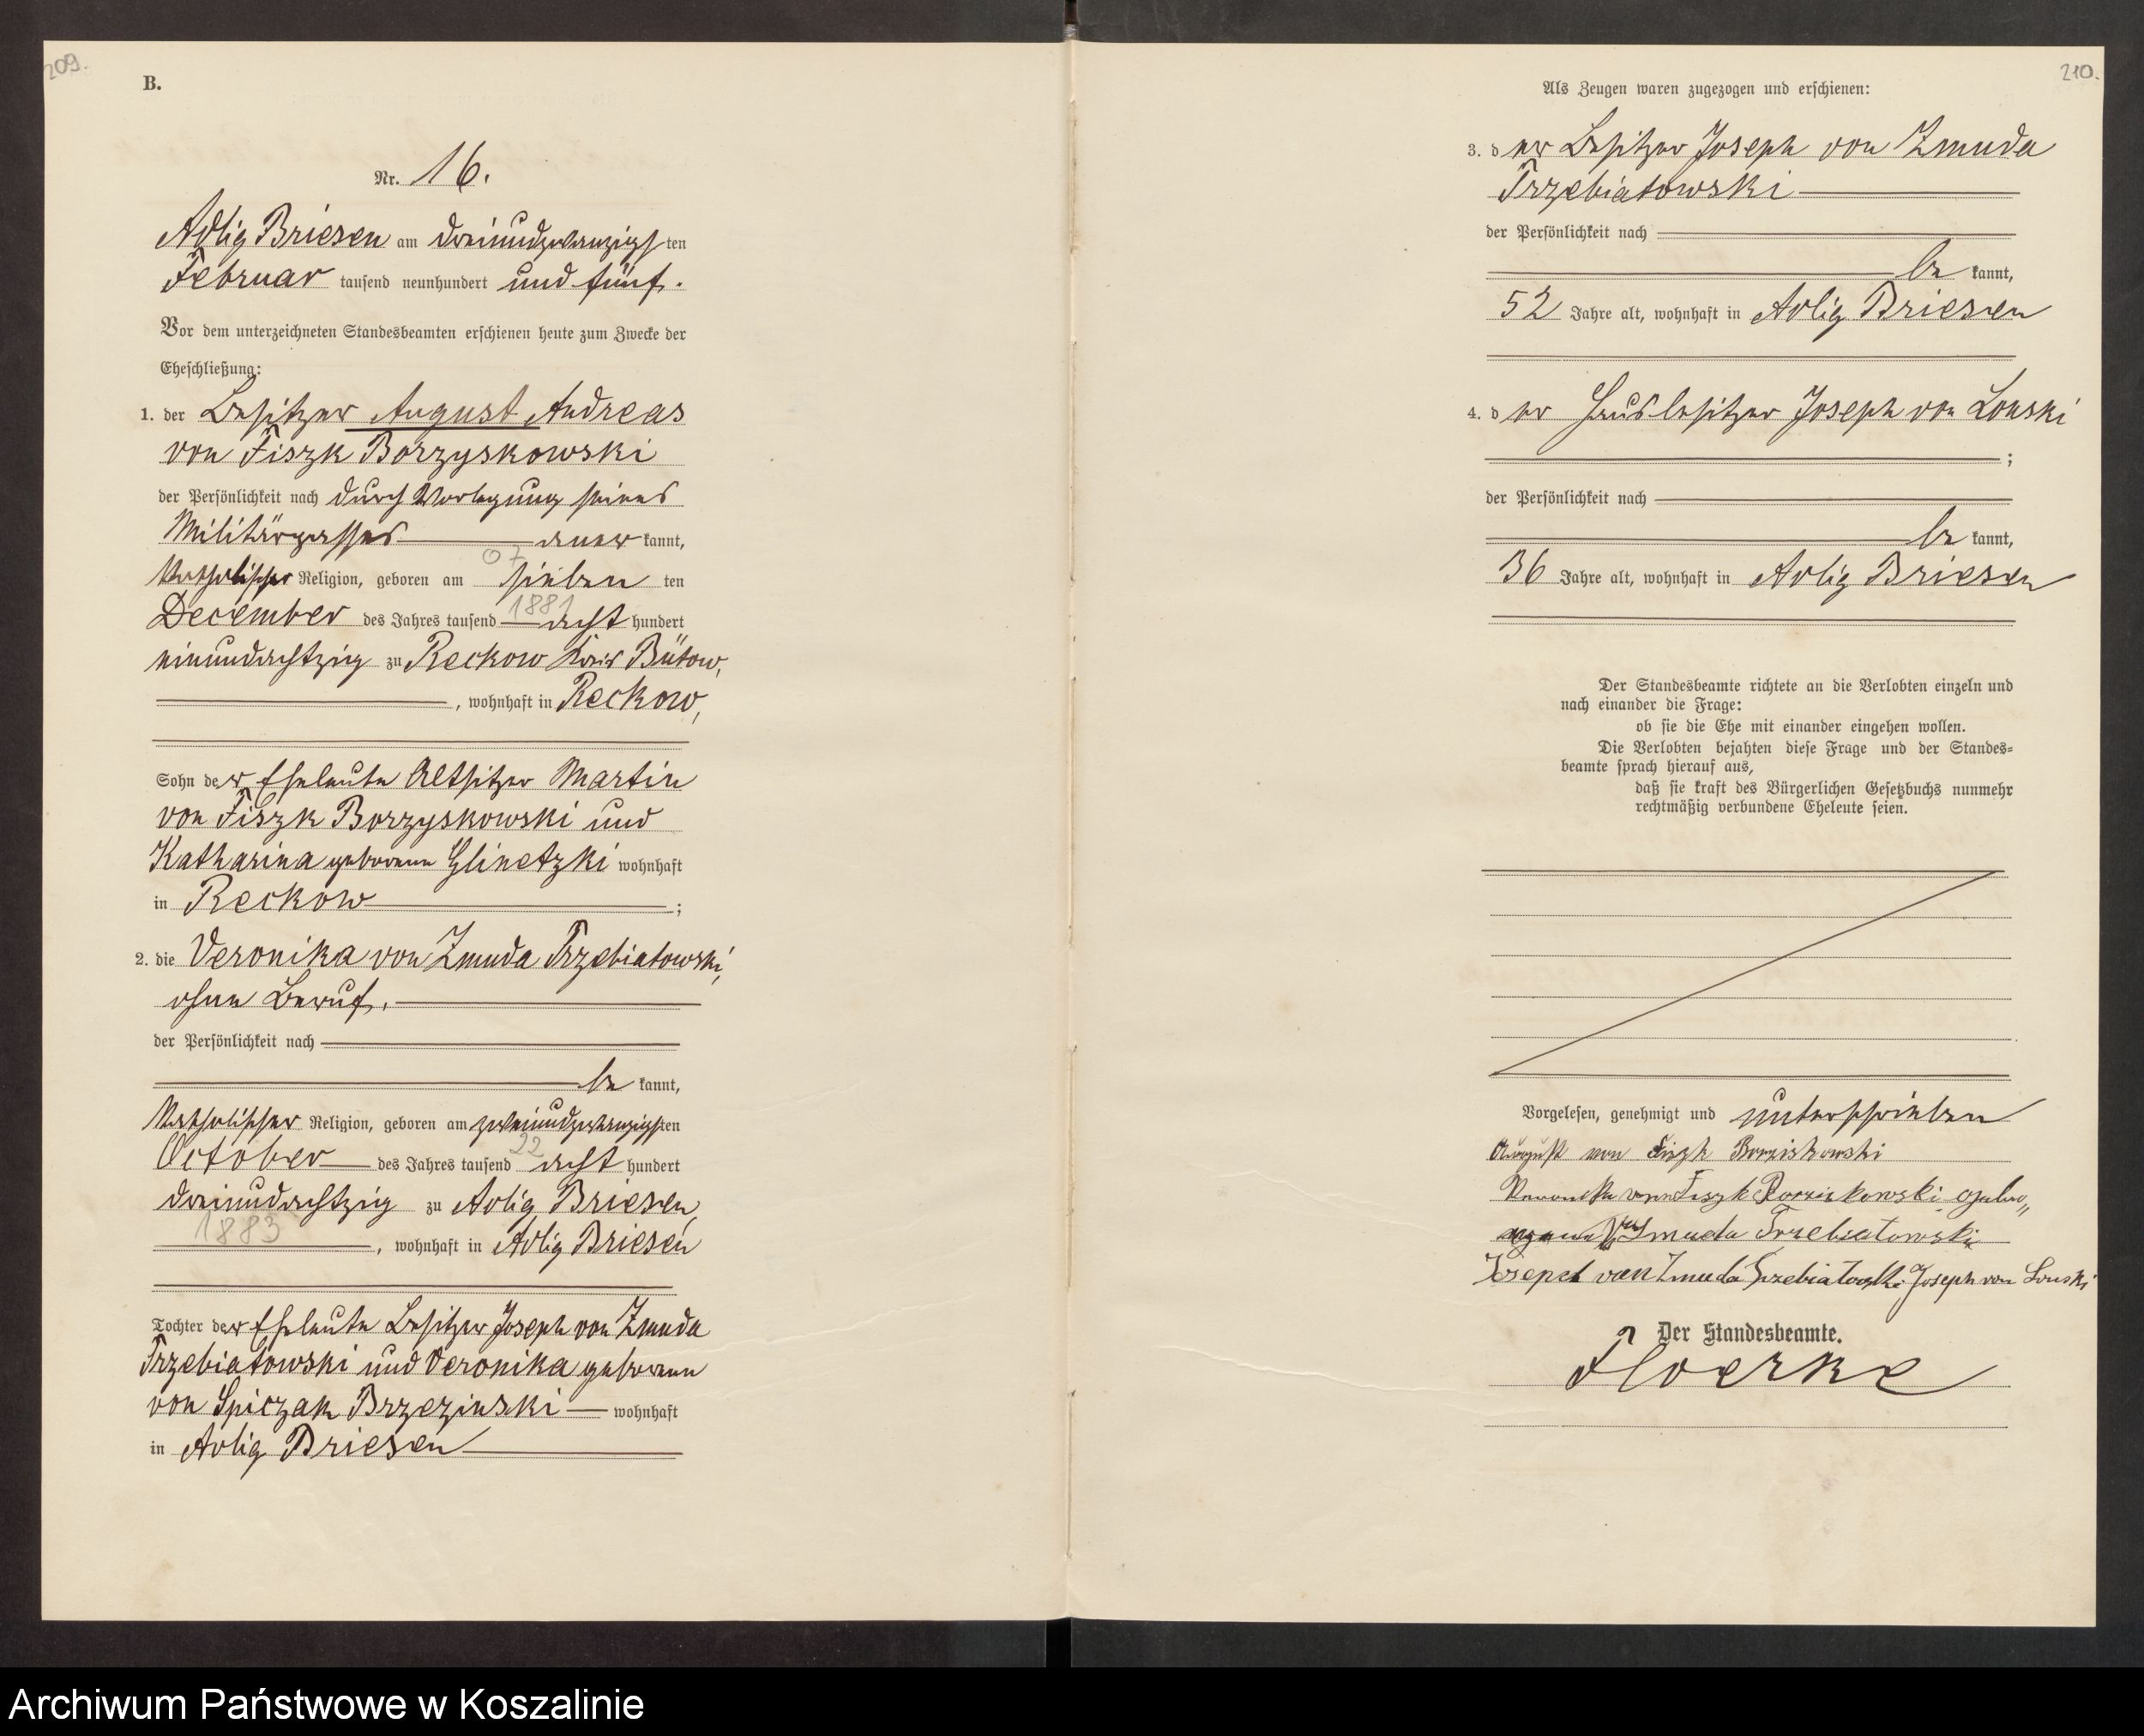 209.
B.
Nr. 16.
Adlig Briesen am dreiundzwanzigsten
Februar tausend neunhundert und fünf.
Vor dem unterzeichneten Standesbeamten erschienen heute zum Zwecke der
Eheschließung:
1. der Besitzer August Andreas
von Fiszk Borzyskowski
der Persönlichkeit nach durch Vorlegung seines
Militärpasses anerkannt,
07
katholischer Religion, geboren am sieben ten
1881
December des Jahres tausend acht hundert
einundachtzig zu Reckow Kreis Bütow,
, wohnhaft in Reckow,
Sohn der Eheleute Altsitzer Martin
von Fiszk Borzyskowski und
Katharina geborene Glinetzki wohnhaft
in Reckow ;
2. die Veronika von Zmuda Trzebiatowski,
ohne Beruf.
der Persönlichkeit nach
be kannt,
katholischer Religion, geboren am zweiundzwanzigsten
22
October des Jahres tausend acht hundert
dreiundachtzig zu Adlig Briesen,
1883
, wohnhaft in Adlig Briesen
Tochter der Eheleute Besitzer Joseph von Zmuda
Trzebiatowski und Veronika geborene
von Spiczak Brzezinski wohnhaft
in Adlig Briesen
210.
Als Zeugen waren zugezogen und erschienen:
3. der Besitzer Joseph von Zmuda
Trzebiatowski
der Persönlichkeit nach
be kannt,
52 Jahre alt, wohnhaft in Adlig Briesen
4. der Hausbesitzer Joseph von Lonski
;
der Persönlichkeit nach
be kannt,
36 Jahre alt, wohnhaft in Adlig Briesen
Der Standesbeamte richtete an die Verlobten einzeln und
nach einander die Frage:
ob sie die Ehe mit einander eingehen wollen.
Die Verlobten bejahten diese Frage und der Standes-
beamte sprach hierauf aus,
daß sie kraft des Bürgerlichen Gesetzbuchs nunmehr
rechtmäßig verbundene Eheleute seien.
Vorgelesen, genehmigt und unterschrieben
August von Fiszk Borziskowski
Veronika von Fiszk Borziskowski gebo"
Zmuda Trzebiatowski
Josepch von Zmuda Trzebiatowski Joseph von Lonski
Der Standesbeamte.